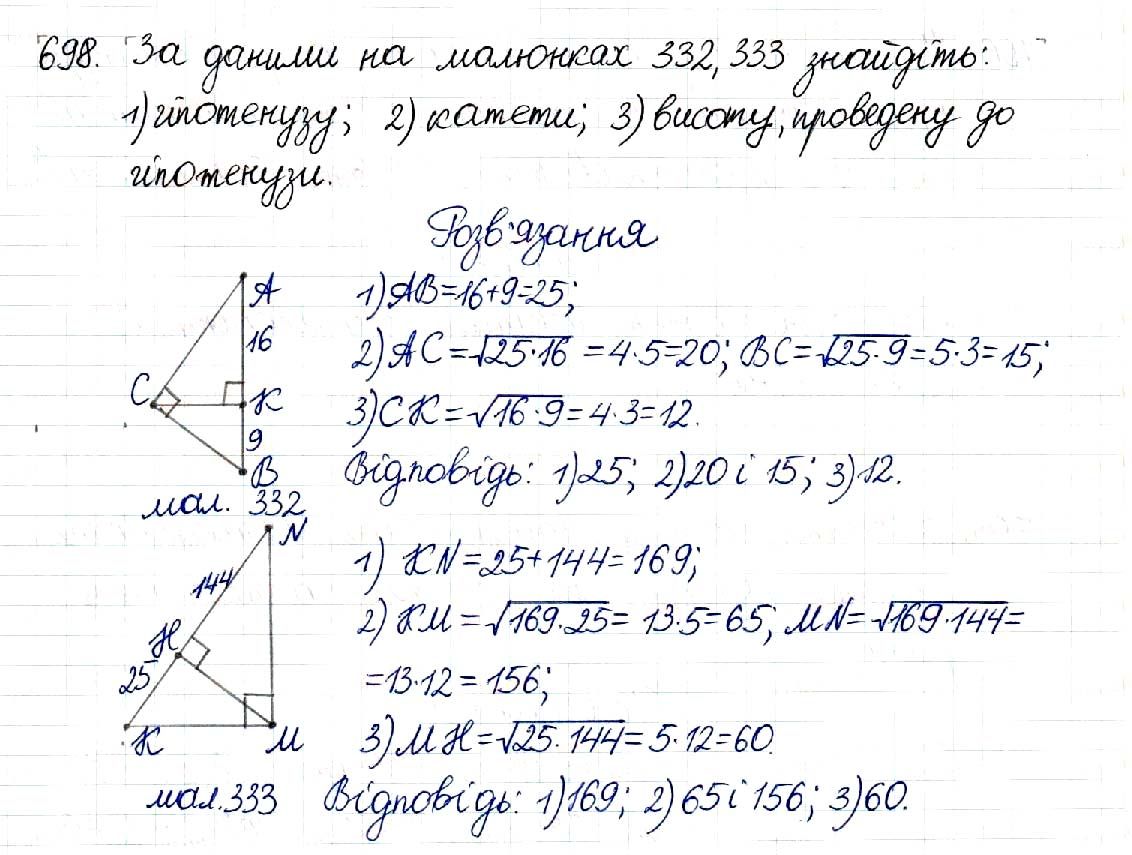 698. За даними на малюнках 332, 333 знайдіть:
1) гіпотенузу; 2) катети; 3) висоту, проведену до
гіпотенузи.
Розв'язання
A
16
C
K
9
B
мал. 332
1) AB=16+9=25;
2) AC=√25·16=4·5=20; BC=√25·9=5·3=15;
3) CK=√16·9=4·3=12.
Відповідь: 1) 25; 2) 20 і 15; 3) 12.
N
144
H
25
K
M
мал. 333
1) KN=25+144=169;
2) KM=√169·25=13·5=65; MN=√169·144=
=13·12=156;
3) MH=√25·144=5·12=60.
Відповідь: 1) 169; 2) 65 і 156; 3) 60.